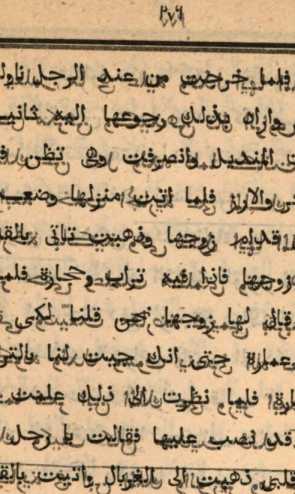 ٢٧٦
فلما خرجت من عند الرجل ناول
واراد بذلك رجوعها اليه ثانيـ
المنديل وانصرفت وهي تظن
والارز فلما اتت منزلها وضعـ
قدام زوجها وذهبت تاتي بالقد
زوجها فاذا فيه تراب وحجارة فلمـ
قال لها زوجها نحن قلنا لكي
عمارة حتى انك جبت لنا بالتر
فلما نظرت الى ذلك علمت
قد نصب عليها فقالت يا رجل
قلبي ذهبت الى الغربال واتيت بالقد